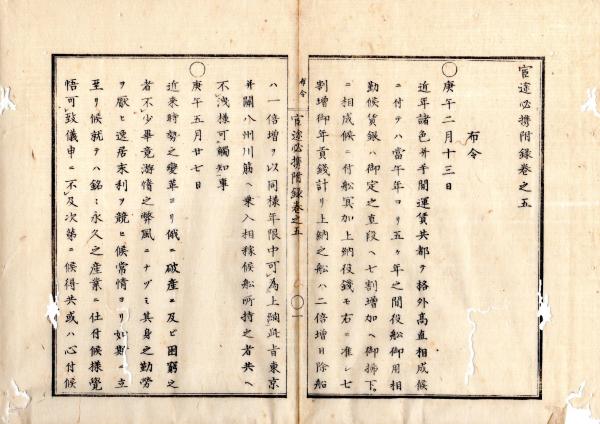 官途必携附録巻之五
布令
◯庚午二月十三日
近年諸色并手間運賃共都テ格外高直相成候
ニ付テハ當午年ヨリ五ヶ年之間役船御用相
勤候賃銀ハ御定之直段ヘ七割増加ヘ御拂下
ニ相成候ニ付船冥加上納役錢モ右ニ准シ七
割増御年貢錢計リ上納之船ハ二倍増日除船
布令 官途必携附録巻之五 ◯一
ハ一倍増ヲ以同樣年限中可為上納此旨東京
并關八州川筋ヘ乗入相稼候船所持之者共ヘ
不洩樣可觸知事
◯庚午五月廿七日
近来時勢之變革ヨリ俄ニ破產ニ及ヒ困窮之
者不少畢竟游惰之弊風ニナヅミ其身之勤勞
ヲ厭ヒ逸居末利ヲ競ヒ候常情ヨリ如斯ニ立
至リ候就テハ銘々永久之產業ニ仕付候樣覺
悟可致儀申ニ不及次第ニ候得共或ハ心付候